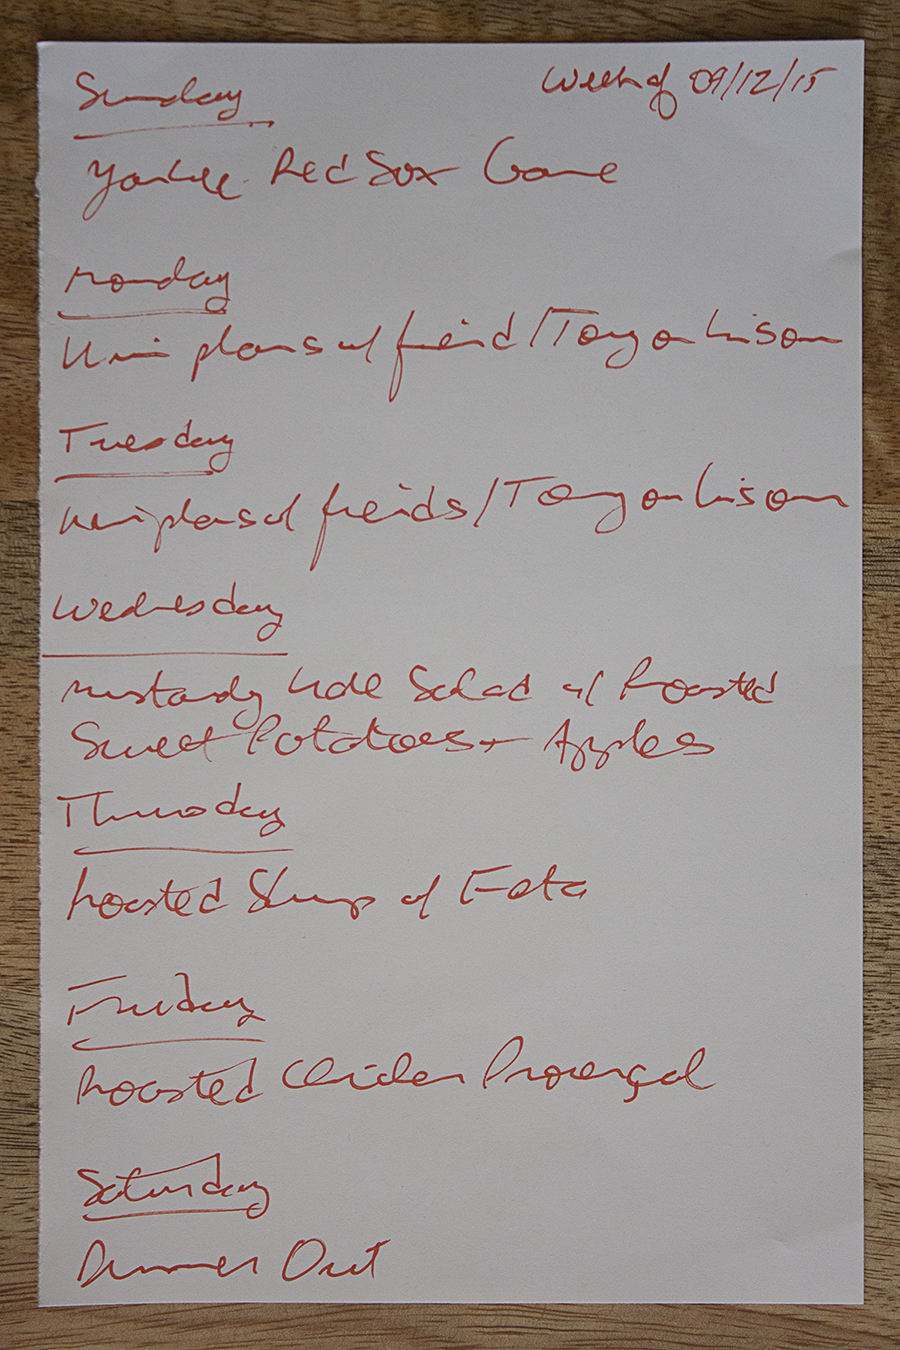 Sunday
Week of 09/12/15
Yankee Red Sox Game
Monday
Uni plans w/ friend / Tony on liaison
Tuesday
Uni plans w/ friends / Tony on liaison
Wednesday
Mustardy Kale Salad w/ Roasted
Sweet Potatoes + Apples
Thursday
Roasted Shrimp w/ Feta
Friday
Roasted Chicken Provençal
Saturday
Dinner Out